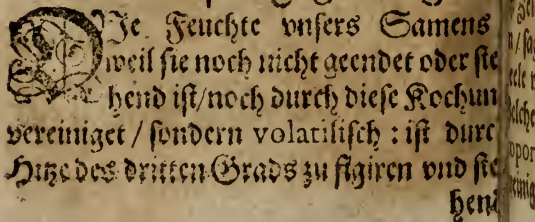 Die Feuchte vnsers Samens
weil sie noch nicht geendet oder ste
hend ist/noch durch diese Kochun
vereiniget / sondern volatilisch : ist durc
Hitze des dritten Grads zu figiren vnd ste
hend